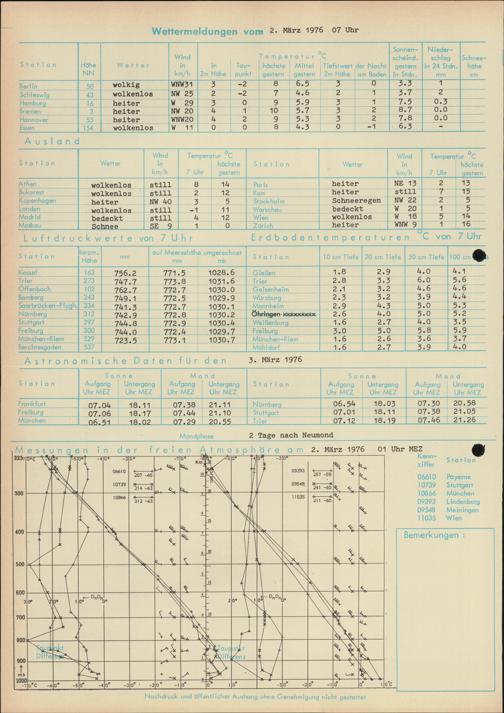 Wettermeldungen vom 2. März 1976 07 Uhr
Station Höhe NN Wetter Wind in km/h Temperatur °C in 2m Höhe Tau-punkt höchste gestern Mittel gestern Tiefstwert der Nacht 2m Höhe am Boden Sonnen-scheind. gestern in Stdn. Nieder-schlag in 24 Stdn. mm Schnee-höhe cm
Berlin 50 wolkig WNW31 3 -2 8 6.5 3 0 3.3 1
Schleswig 43 wolkenlos NW 25 2 -2 7 4.6 2 1 3.7 2
Hamburg 16 heiter W 29 3 0 9 5.9 3 1 7.5 0.3
Bremen 3 heiter NW 20 4 1 10 5.7 3 2 8.7 0.0
Hannover 55 heiter WNW20 4 2 9 5.3 3 2 7.8 0.0
Essen 154 wolkenlos W 11 0 0 8 4.3 0 -1 6.3 -
Ausland
Station Wetter Wind in km/h Temperatur °C 7 Uhr höchste gestern Station Wetter Wind in km/h Temperatur °C 7 Uhr höchste gestern
Athen wolkenlos still 8 14 Paris heiter NE 13 2 13
Bukarest wolkenlos still 2 12 Rom heiter still 7 15
Kopenhagen heiter NW 40 3 5 Stockholm Schneeregen NW 22 2 5
London wolkenlos still -1 11 Warschau bedeckt W 20 1 5
Madrid bedeckt still 4 12 Wien wolkenlos W 18 5 14
Moskau Schnee SE 9 1 0 Zürich heiter WNW 9 1 16
Luftdruckwerte von 7 Uhr Erdbodentemperaturen °C von 7 Uhr
Station Barom. Höhe mm auf Meereshöhe umgerechnet mm mb Station 10 cm Tiefe 20 cm Tiefe 50 cm Tiefe 100 cm
Kassel 163 756.2 771.5 1028.6 Gießen 1.8 2.9 4.0 4.1
Trier 273 747.7 773.8 1031.6 Trier 2.8 3.3 6.0 5.6
Offenbach 102 762.7 772.7 1030.0 Geisenheim 2.1 3.2 4.6 4.6
Bamberg 243 749.1 772.5 1029.9 Würzburg 2.3 3.2 3.9 4.4
Saarbrücken-Flugh. 334 741.3 772.7 1030.1 Mannheim 2.9 4.3 5.0 5.3
Nürnberg 312 742.9 772.8 1030.2 Öhringen xxxxxxxxx 2.6 4.0 5.0 5.2
Stuttgart 297 744.8 772.9 1030.4 Weißenburg 1.6 2.7 4.0 3.5
Freiburg 300 744.0 772.4 1029.7 Freiburg 3.0 5.0 5.8 5.9
München-Riem 529 723.5 773.1 1030.7 München-Riem 1.6 2.6 3.6 3.7
Berchtesgaden 557 Mühldorf 1.6 2.7 3.9 4.0
Astronomische Daten für den 3. März 1976
Station Sonne Aufgang Uhr MEZ Untergang Uhr MEZ Mond Aufgang Uhr MEZ Untergang Uhr MEZ Station Sonne Aufgang Uhr MEZ Untergang Uhr MEZ Mond Aufgang Uhr MEZ Untergang Uhr MEZ
Frankfurt 07.04 18.11 07.38 21.11 Nürnberg 06.54 18.03 07.30 20.58
Freiburg 07.06 18.17 07.44 21.10 Stuttgart 07.01 18.11 07.38 21.05
München 06.51 18.02 07.29 20.55 Trier 07.12 18.19 07.46 21.26
Mondphase 2 Tage nach Neumond
Messungen in der freien Atmosphäre am 2. März 1976 01 Uhr MEZ
Kenn-ziffer Station
06610 Payerne
10739 Stuttgart
10866 München
09393 Lindenberg
09548 Meiningen
11035 Wien
Bemerkungen :
06610
10739
10866
11035
300
400
500
600
700
800
900
1000
Taupunkt Differenz
Taupunkt Differenz
Nachdruck und öffentlicher Aushang ohne Genehmigung nicht gestattet